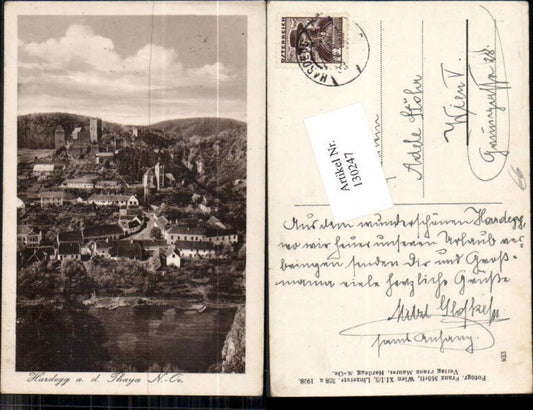 Hardegg a. d. Thaya N.-Oe.
ÖSTERREICH
Artikel Nr.
130247
Adele Stöhr
Wien V.
Aus dem wunderschönen Hardegg,
wo wir heuer unseren Urlaub ver-
bringen, senden dir und Groß-
mama viele herzliche Grüße
samt Anhang.
Fotogr. Franz Mörtl, Wien XI/5, Linzerstr. 328 a 1928.
Verlag Franz Maurer, Hardegg N.-Oe.